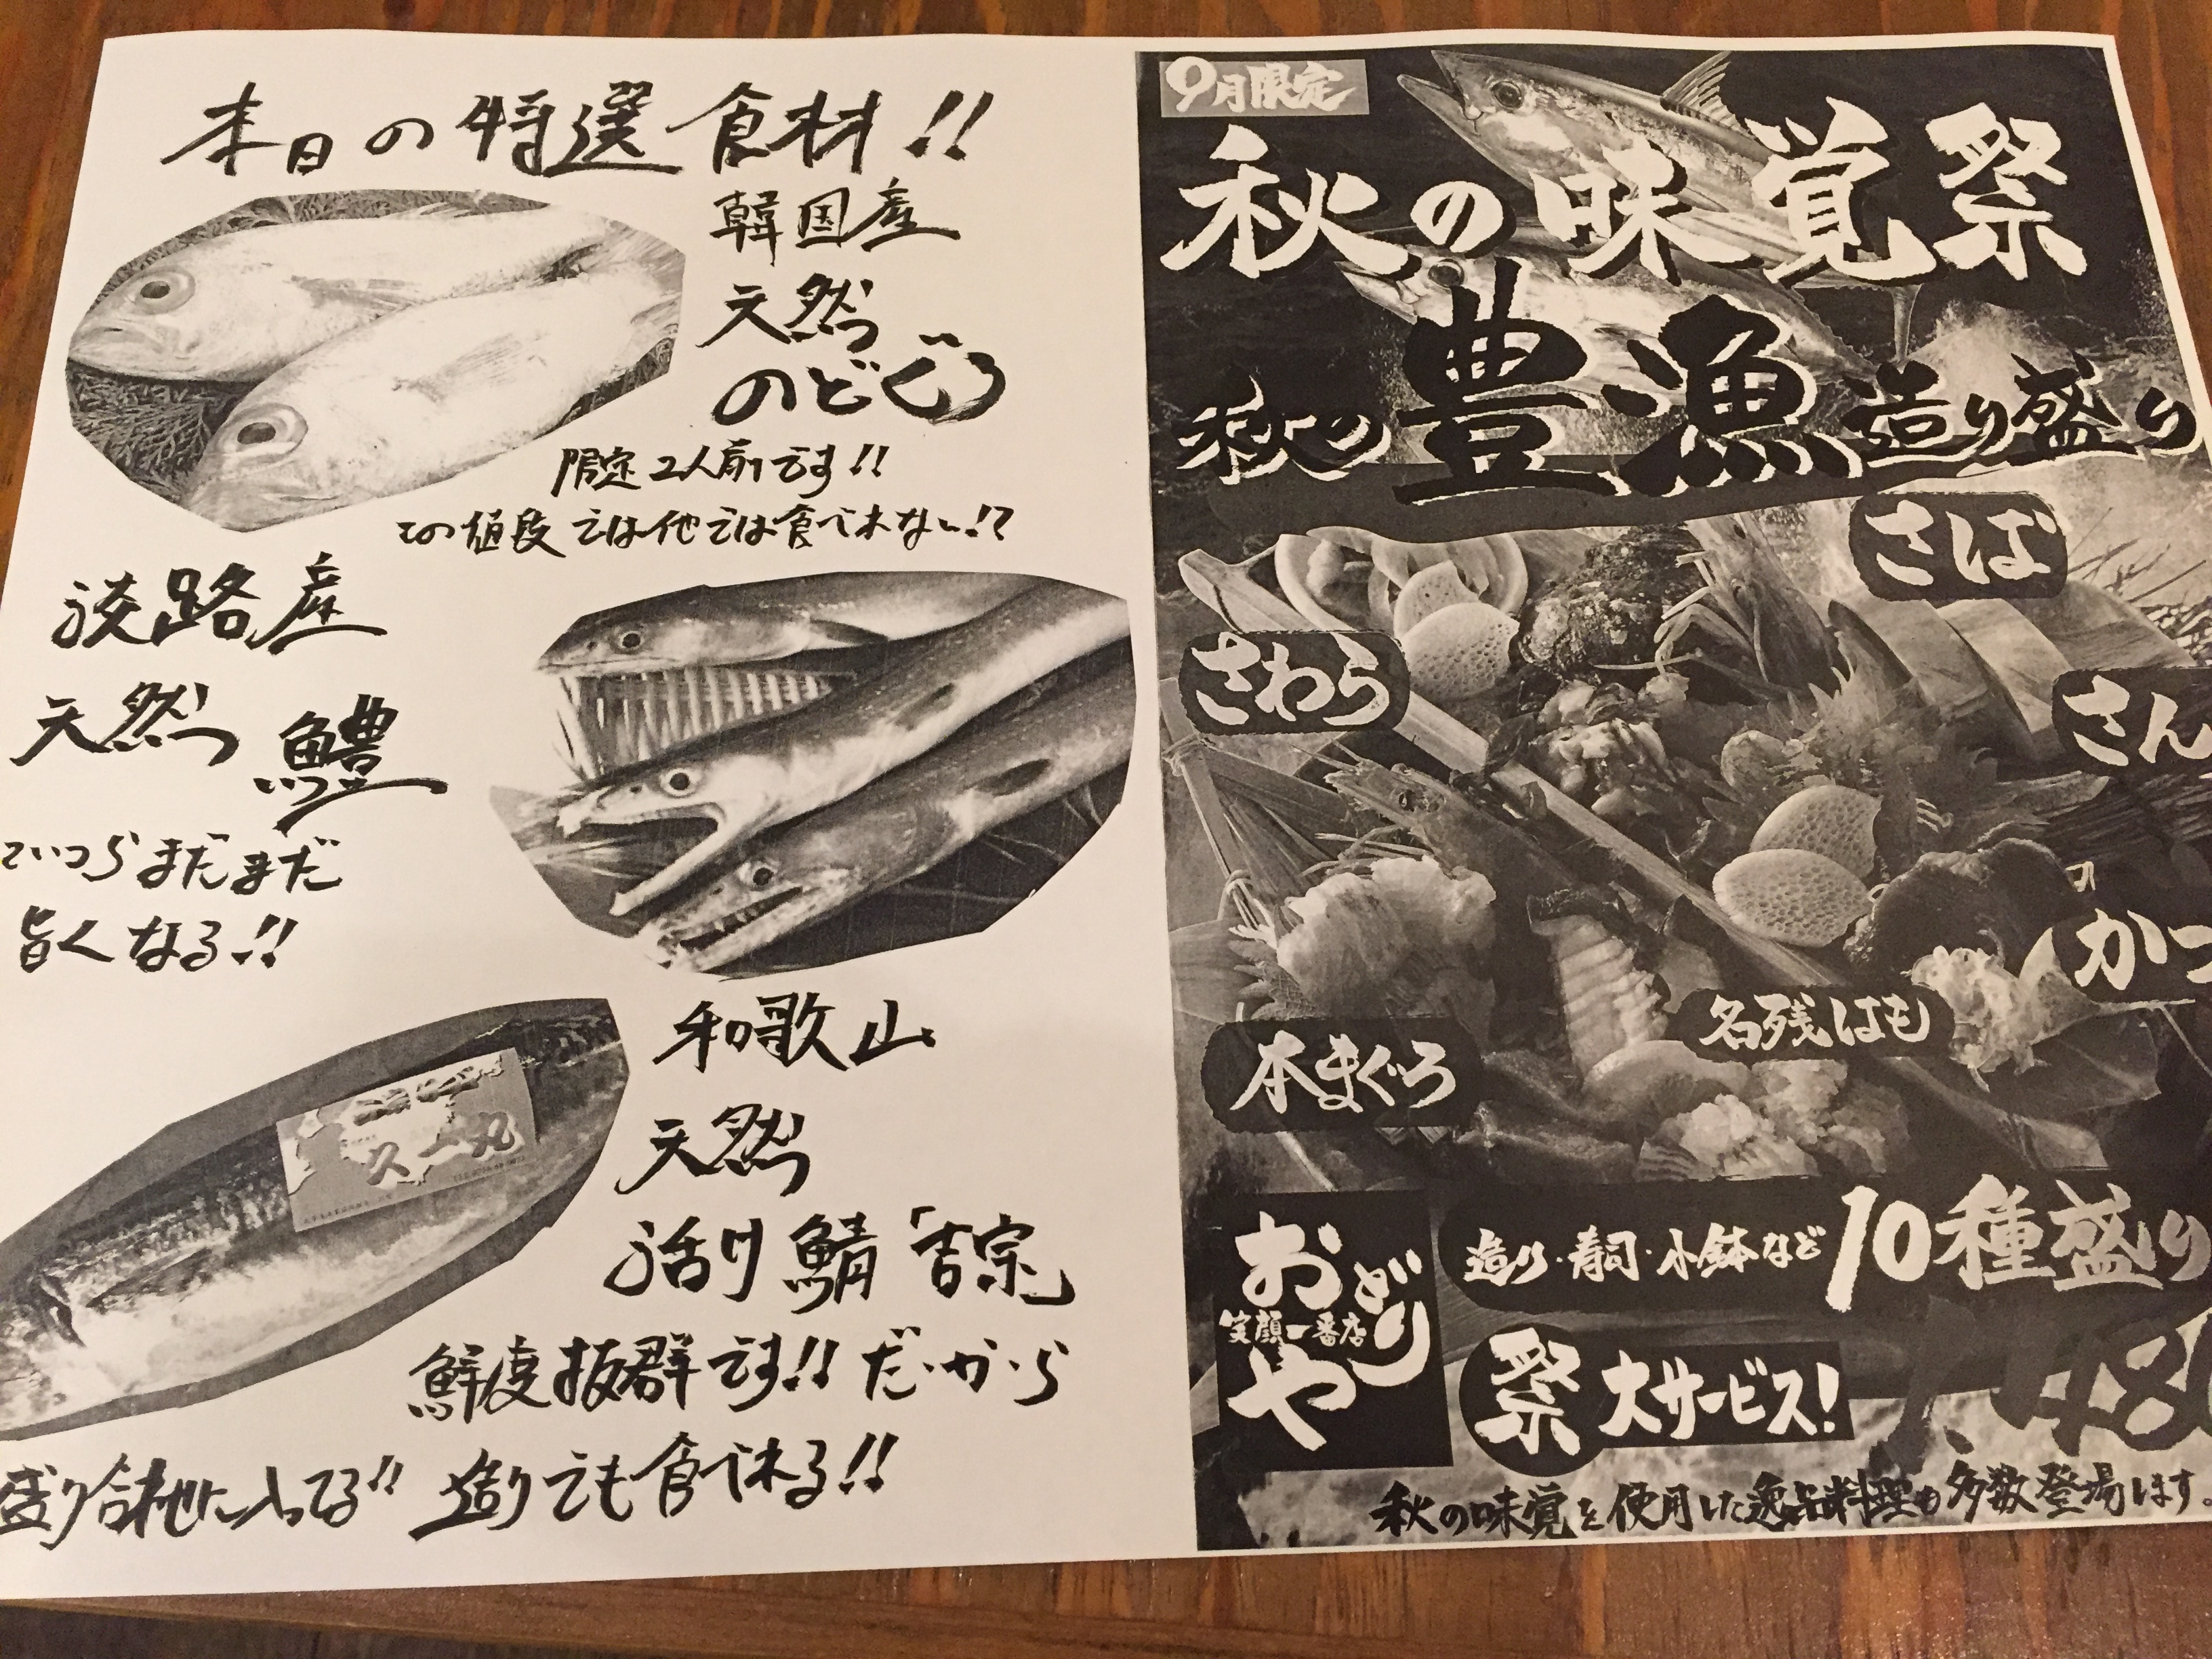 本日の特選食材!!
韓国産
天然
のどぐろ
限定2人前です!!
この値段では他では食べれない!?
淡路産
天然 鱧
こいつらまだまだ
旨くなる!!
久一丸
和歌山
天然
活け鯖「吉宗」
鮮度抜群です!!だ・か・ら
盛り合わせに入ってる!!造りでも食べれる!!
9月限定
秋の味覚祭
秋の豊漁造り盛り
さば
さわら
さん
かつ
名残はも
本まぐろ
造り・寿司・小鉢など10種盛り
おどりや
笑顔一番店
祭 大サービス!
秋の味覚を使用した逸品料理も多数登場します。